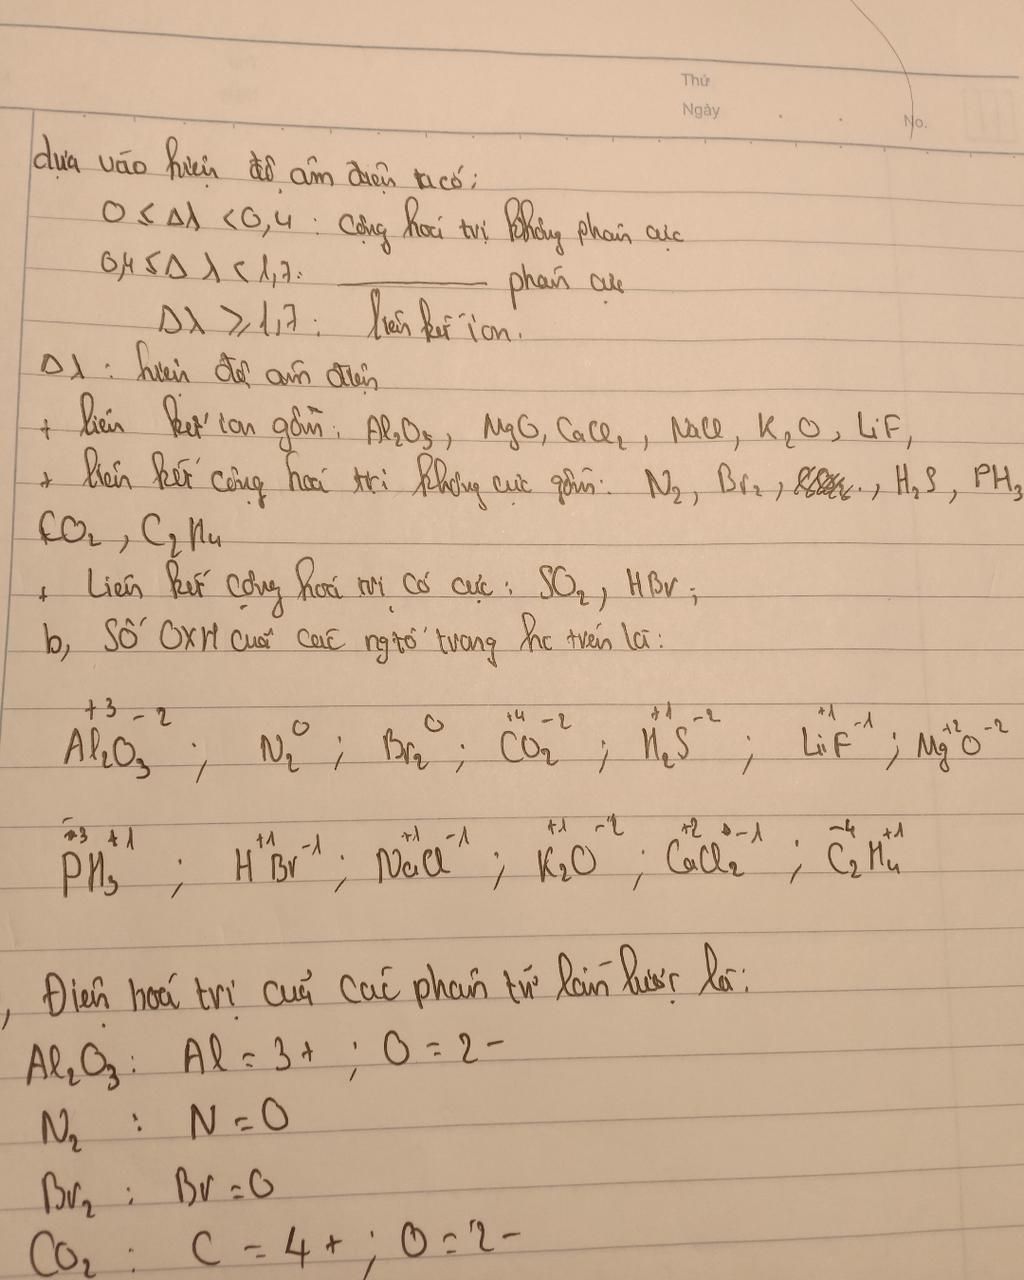 Thứ
Ngày
No.
dựa vào hiệu độ âm điện ta có:
0 ≤ Δλ < 0,4 : cộng hoá trị không phân cực
0,4 ≤ Δλ < 1,7: ———— phân cực
Δλ ≥ 1,7 : liên kết ion.
Δλ : hiệu độ âm điện
+ liên kết ion gồm: Al₂O₃, MgO, CaCl₂, NaCl, K₂O, LiF,
+ liên kết cộng hoá trị không cực gồm: N₂, Br₂, , H₂S, PH₃
CO₂, C₂H₄
+ Liên kết cộng hoá trị có cực: SO₂, HBr;
b, SỐ OXH của các ngtố trong hc trên là:
+3 -2 0 0 +4 -2 +1 -2 +1 -1 +2 -2
Al₂O₃ ; N₂ ; Br₂ ; CO₂ ; H₂S ; LiF ; MgO
-3 +1 +1 -1 +1 -1 +1 -2 +2 -1 -4 +1
PH₃ ; HBr ; NaCl ; K₂O ; CaCl₂ ; C₂H₄
, Điện hoá trị của các phân tử lần lượt là:
Al₂O₃ : Al = 3+ ; O = 2-
N₂ : N = 0
Br₂ : Br = 0
CO₂ : C = 4+ ; O = 2-